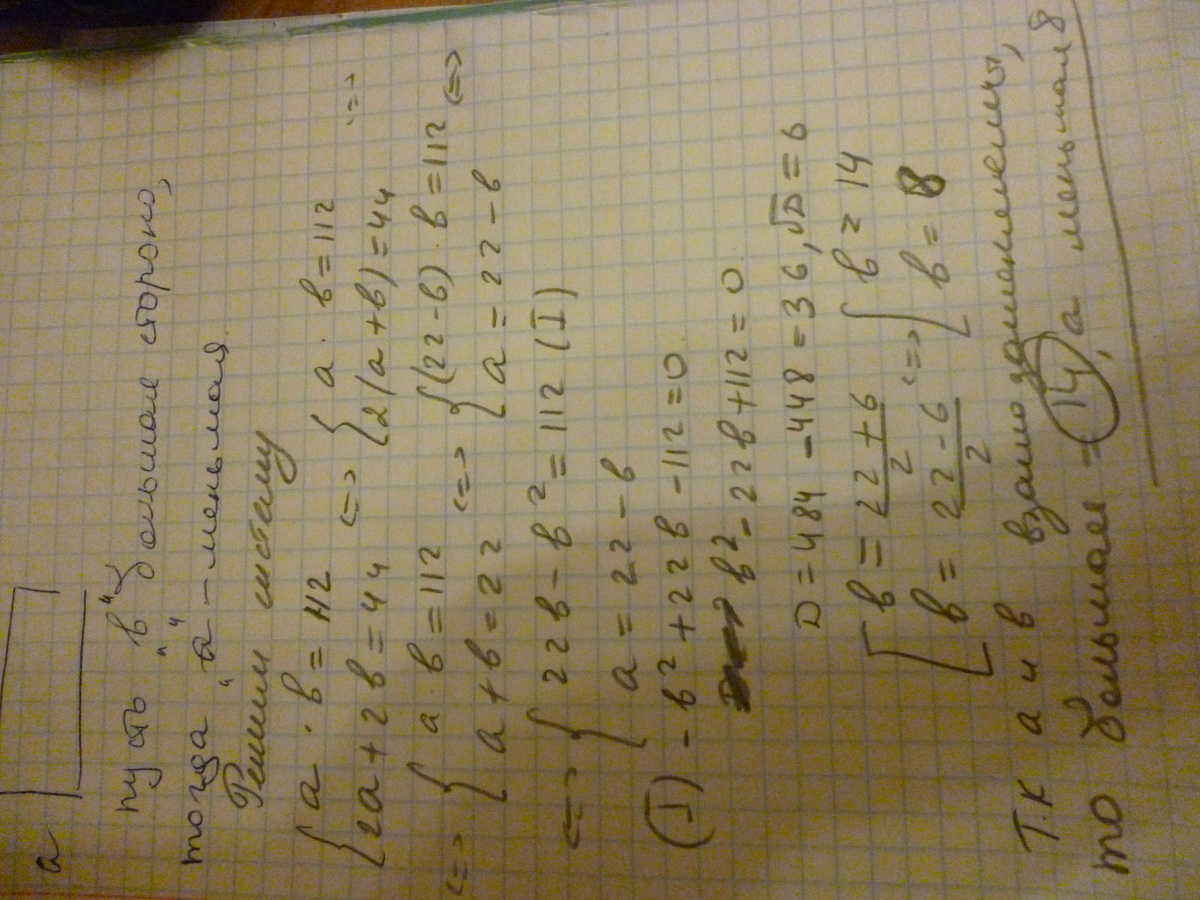 a
пусть "в" большая сторона,
тогда "а" - меньшая
Решим систему
{ a · b = 112
{ 2a + 2b = 44 <=> { a · b = 112
{ 2(a+b) = 44 <=>
<=> { a · b = 112
{ a + b = 22 <=> { (22-b) · b = 112
{ a = 22 - b <=>
<=> { 22b - b² = 112 (I)
{ a = 22 - b
(I) - b² + 22b - 112 = 0
b² - 22b + 112 = 0
D = 484 - 448 = 36, √D = 6
[ b = (22+6)/2
[ b = (22-6)/2 <=> [ b = 14
[ b = 8
Т.К а и в взаимозаменяемы,
то большая = 14, а меньшая 8